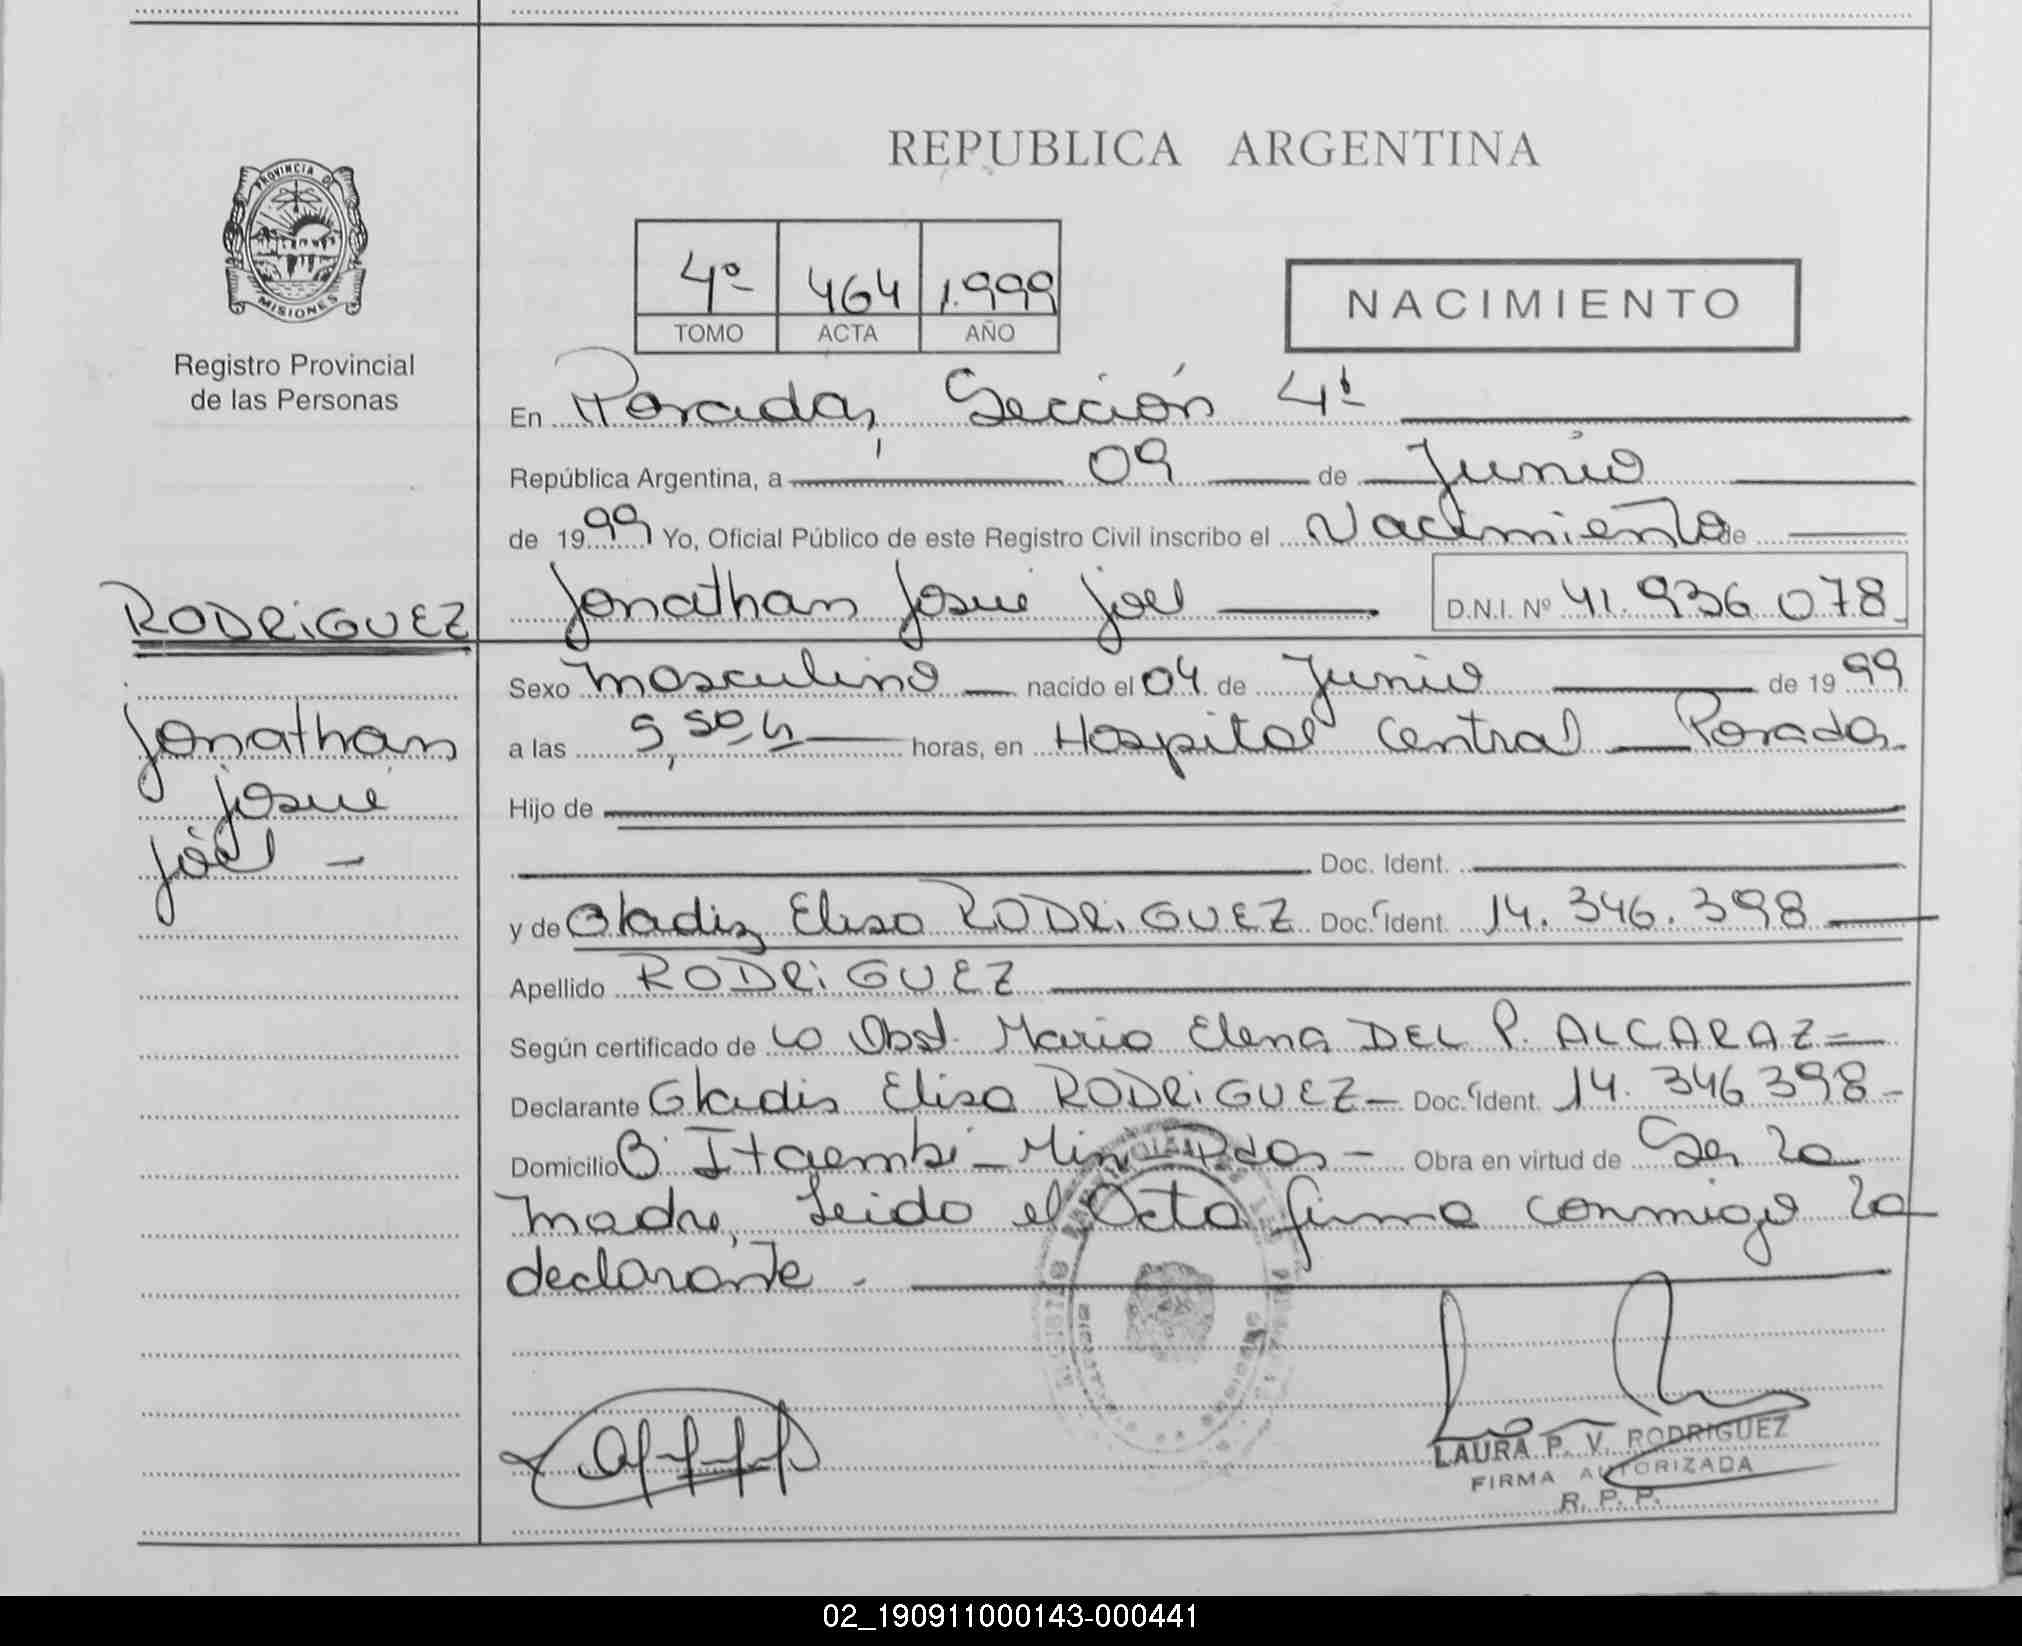 REPUBLICA ARGENTINA
PROVINCIA DE
MISIONES
Registro Provincial
de las Personas
4º 464 1.999
TOMO ACTA AÑO
NACIMIENTO
En Posadas, Sección 4ª
República Argentina, a 09 de Junio
de 1999 Yo, Oficial Público de este Registro Civil inscribo el Nacimiento de
Jonathan Josué Joel D.N.I. Nº 41.936.078
RODRIGUEZ
Jonathan
Josué
Jóel -
Sexo Masculino nacido el 04 de Junio de 1999
a las 5,50 h horas, en Hospital Central Posadas
Hijo de
Doc. Ident.
y de Gladis Elisa RODRIGUEZ Doc. Ident. 14.346.398
Apellido RODRIGUEZ
Según certificado de La Obst. Maria Elena DEL P. ALCARAZ
Declarante Gladis Elisa RODRIGUEZ - Doc. Ident. 14.346.398 -
Domicilio Bº Itaembi - Mini Pdas - Obra en virtud de Ser la
madre, Leido el Acta firma conmigo la
declarante.
LAURA P. V. RODRIGUEZ
FIRMA AUTORIZADA
R. P. P.
02_190911000143-000441